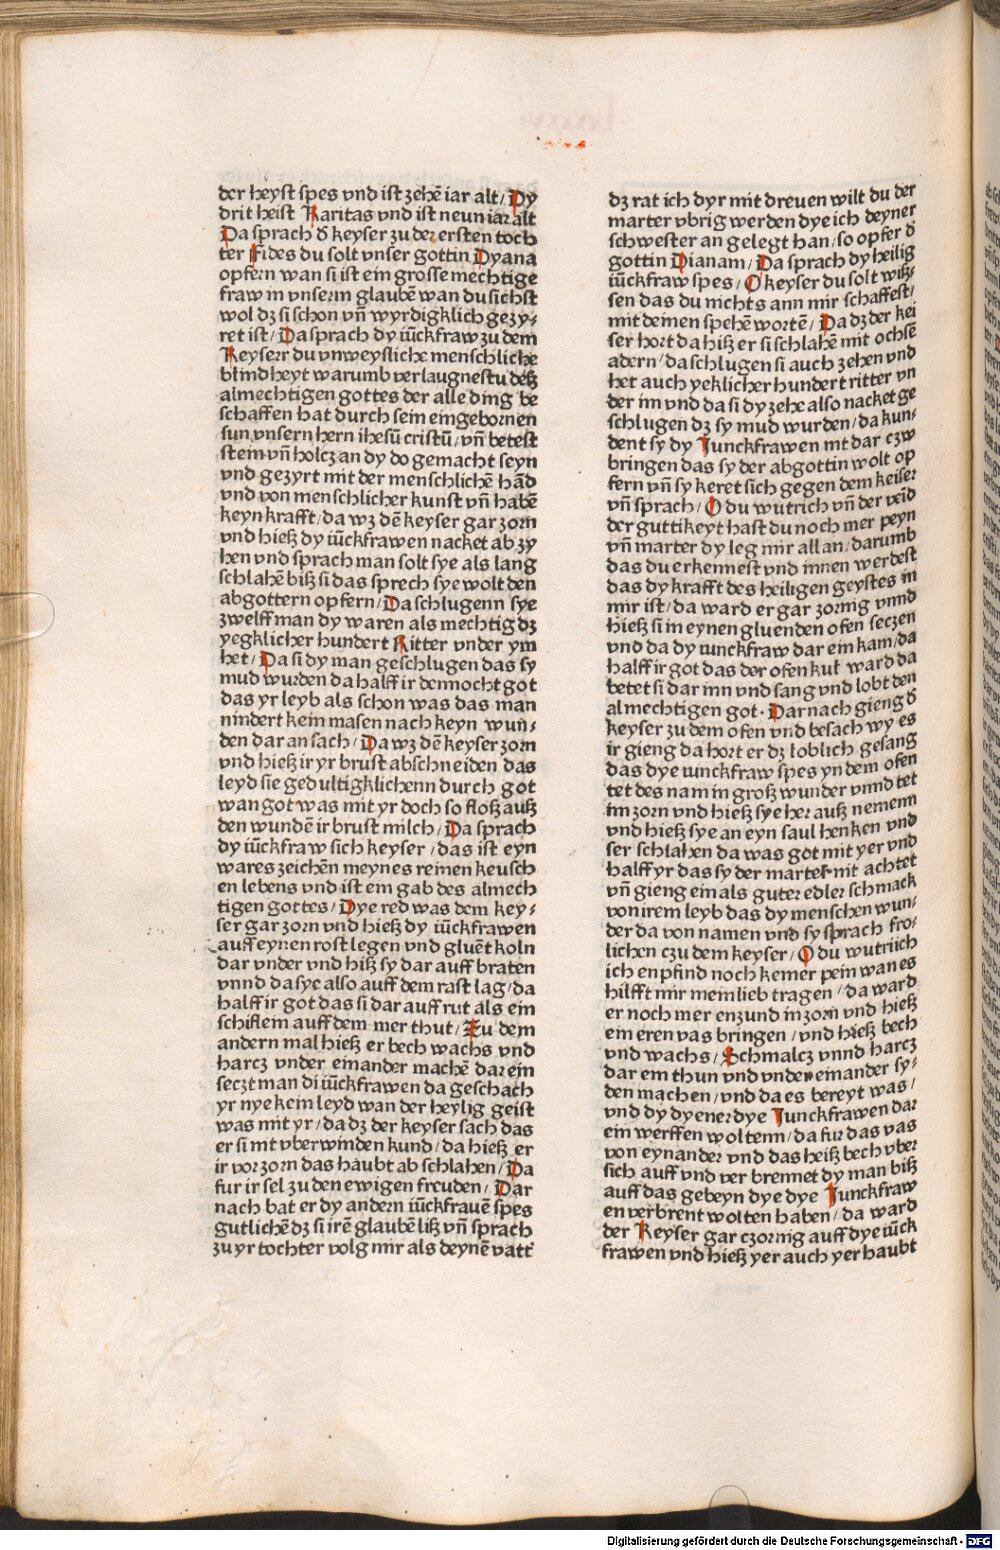 der heyst spes vnd ist zehē iar alt/ Dy
drit heist Karitas vnd ist neun iar alt
Da sprach d̄ keyser zu der ersten toch
ter Fides du solt vnser gottin Dyana
opfern wan si ist ein grosse mechtige
fraw in vnserm glaubē wan du sichst
wol dz si schon vn̄ wyrdigklich gezy⸗
ret ist/ Da sprach dy iūckfraw zu dem
Keyserr du vnweysliche menschliche
blindheyt warumb verlaugnestu deß
almechtigen gottes der alle ding be
schaffen hat durch sein eingebornen
sun vnsern hern ihesū cristū/ vn̄ betest
stein vn̄ holcz an dy do gemacht seyn
vnd gezyrt mit der menschlichē hād
vnd von menschlicher kunst vn̄ habē
keyn krafft/ da wz dē keyser gar zorn
vnd hieß dy iūckfrawen nacket ab zy
hen vnd sprach man solt sye als lang
schlahē biß si das sprech sye wolt den
abgottern opfern/ Da schlugenn sye
zwelff man dy waren als mechtig dz
yegklicher hundert Ritter vnder ym
het/ Da si dy man geschlugen das sy
mud wurden da halff ir dennocht got
das yr leyb als schon was das man
nindert kein masen nach keyn wun⸗
den dar an sach/ Da wz dē keyser zorn
vnd hieß ir yr brust abschneiden das
leyd sie gedultigklichenn durch got
wan got was mit yr doch so floß auß
den wundē ir brust milch/ Da sprach
dy iūckfraw sich keyser/ das ist eyn
wares zeichēn meynes reinen keusch
en lebens vnd ist em gab des almech
tigen gottes/ Dye red was dem key⸗
ser gar zorn vnd hieß dy iūckfrawen
auff eynen rost legen vnd gluēt koln
dar vnder vnd hiß sy dar auff braten
vnnd da sye also auff dem rast lag/ da
halff ir got das si dar auff rut als ein
schiflem auff dem mer thut/ Zu dem
andern mal hieß er bech wachs vnd
harcz vnder einander machē dar ein
seczt man di iūckfrawen da geschach
yr nye kein leyd wan der heylig geist
was mit yr/ da dz der keyser sach das
er si mt vberwinden kund/ da hieß er
ir vor zorn das haubt ab schlahen/ Da
fur ir sel zu den ewigen freuden/ Dar
nach bat er dy andern iūckfrauē spes
gutlichē dz si irē glaubē liß vn̄ sprach
zu yr tochter volg mir als deynē vatt̄
dz rat ich dyr mit dreuen wilt du der
marter vbrig werden dye ich deyner
schwester an gelegt han/ so opfer d̄
gottin Dianam/ Da sprach dy heilig
iūckfraw spes/ O keyser du solt wiß⸗
sen das du nichts ann mir schaffest/
mit deinen spehē wortē/ Da dz der kei
ser hort da hiß er si schlahē mit ochsē
adern/ da schlugen si auch zehen vnd
het auch yeklicher hundert ritter vn
der im vnd da si dy zehe also nacket ge
schlugen dz sy mud wurden/ da kun⸗
dent sy dy Junckfrawen mt dar czw
bringen das sy der abgottin wolt op
fern vn̄ sy keret sich gegen dem keiser
vn̄ sprach/ O du wutrich vn̄ der veīd
der guttikeyt hast du noch mer peyn
vn̄ marter dy leg mir all an/ darumb
das du erkennest vnd innen werdest
das dy krafft des heiligen geystes in
mir ist/ da ward er gar zornig vnnd
hieß si in eynen gluenden ofen seczen
vnd da dy iunckfraw dar ein kam/ da
halff ir got das der ofen kul ward da
betet si dar inn vnd sang vnd lobt den
almechtigen got. Darnach gieng d̄
keyser zu dem ofen vnd besach wy es
ir gieng da hort er dz loblich gesang
das dye iunckfraw spes yn dem ofen
tet des nam in groß wunder vnnd tet
im zorn vnd hieß sye her auß nemenn
vnd hieß sye an eyn saul henken vnd
ser schlahen da was got mit yer vnd
halff yr das sy der marter nit achtet
vn̄ gieng ein als guter edler schmack
von irem leyb das dy menschen wun⸗
der da von namen vnd sy sprach fro⸗
lichen czu dem keyser/ O du wutriich
ich enpfind noch keiner pein wan es
hilfft mir mein lieb tragen/ da ward
er noch mer enzund in zorn vnd hieß
ein eren vas bringen/ vnd hieß bech
vnd wachs/ Schmalcz vnnd harcz
dar em thun vnd vnder einander sy⸗
den machen/ vnd da es bereyt was/
vnd dy dyener dye Junckfrawen dar
ein werffen woltenn/ da fur das vas
von eynander vnd das heiß bech vber
sich auff vnd ver brennet dy man biß
auff das gebeyn dye dye Junckfraw
en verbrent wolten haben/ da ward
der Keyser gar czornig auff dye iūck
frawen vnd hieß yer auch yer haubt
Digitalisierung gefördert durch die Deutsche Forschungsgemeinschaft - DFG